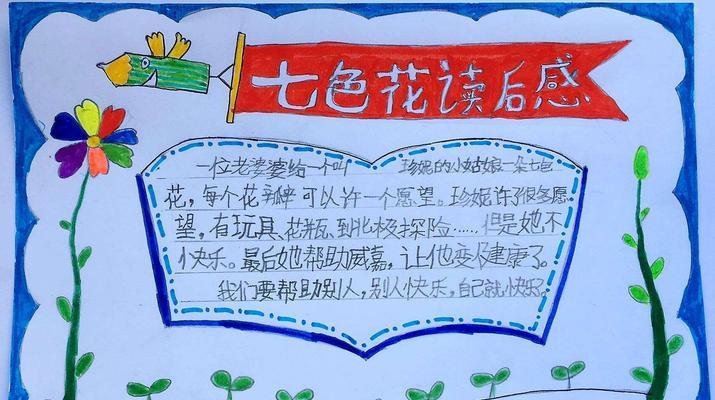 七色花读后感
一位老婆婆给一个叫 珍妮的小姑娘一朵七色
花，每个花瓣可以许一个愿望。珍妮许了很多愿
望，有玩具、花瓶、到北极探险……但是她不
快乐。最后她帮助威嘉，让他变得健康了。
我们要帮助别人，别人快乐，自己就快乐。